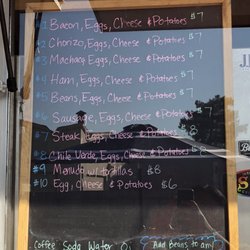 #1 Bacon, Eggs, Cheese & Potatoes $7
#2 Chorizo, Eggs, Cheese & Potatoes $7
#3 Machaca, Eggs, Cheese & Potatoes $7
#4 Ham, Eggs, Cheese & Potatoes $7
#5 Beans, Eggs, Cheese & Potatoes $7
#6 Sausage, Eggs, Cheese & Potatoes $7
#7 Steak, Eggs, Cheese & Potatoes $8
#8 Chile Verde, Eggs, Cheese & Potatoes $8
#9 Menudo w/ tortillas $8
#10 Egg, Cheese & Potatoes $6
Coffee Soda Water
Add beans to any